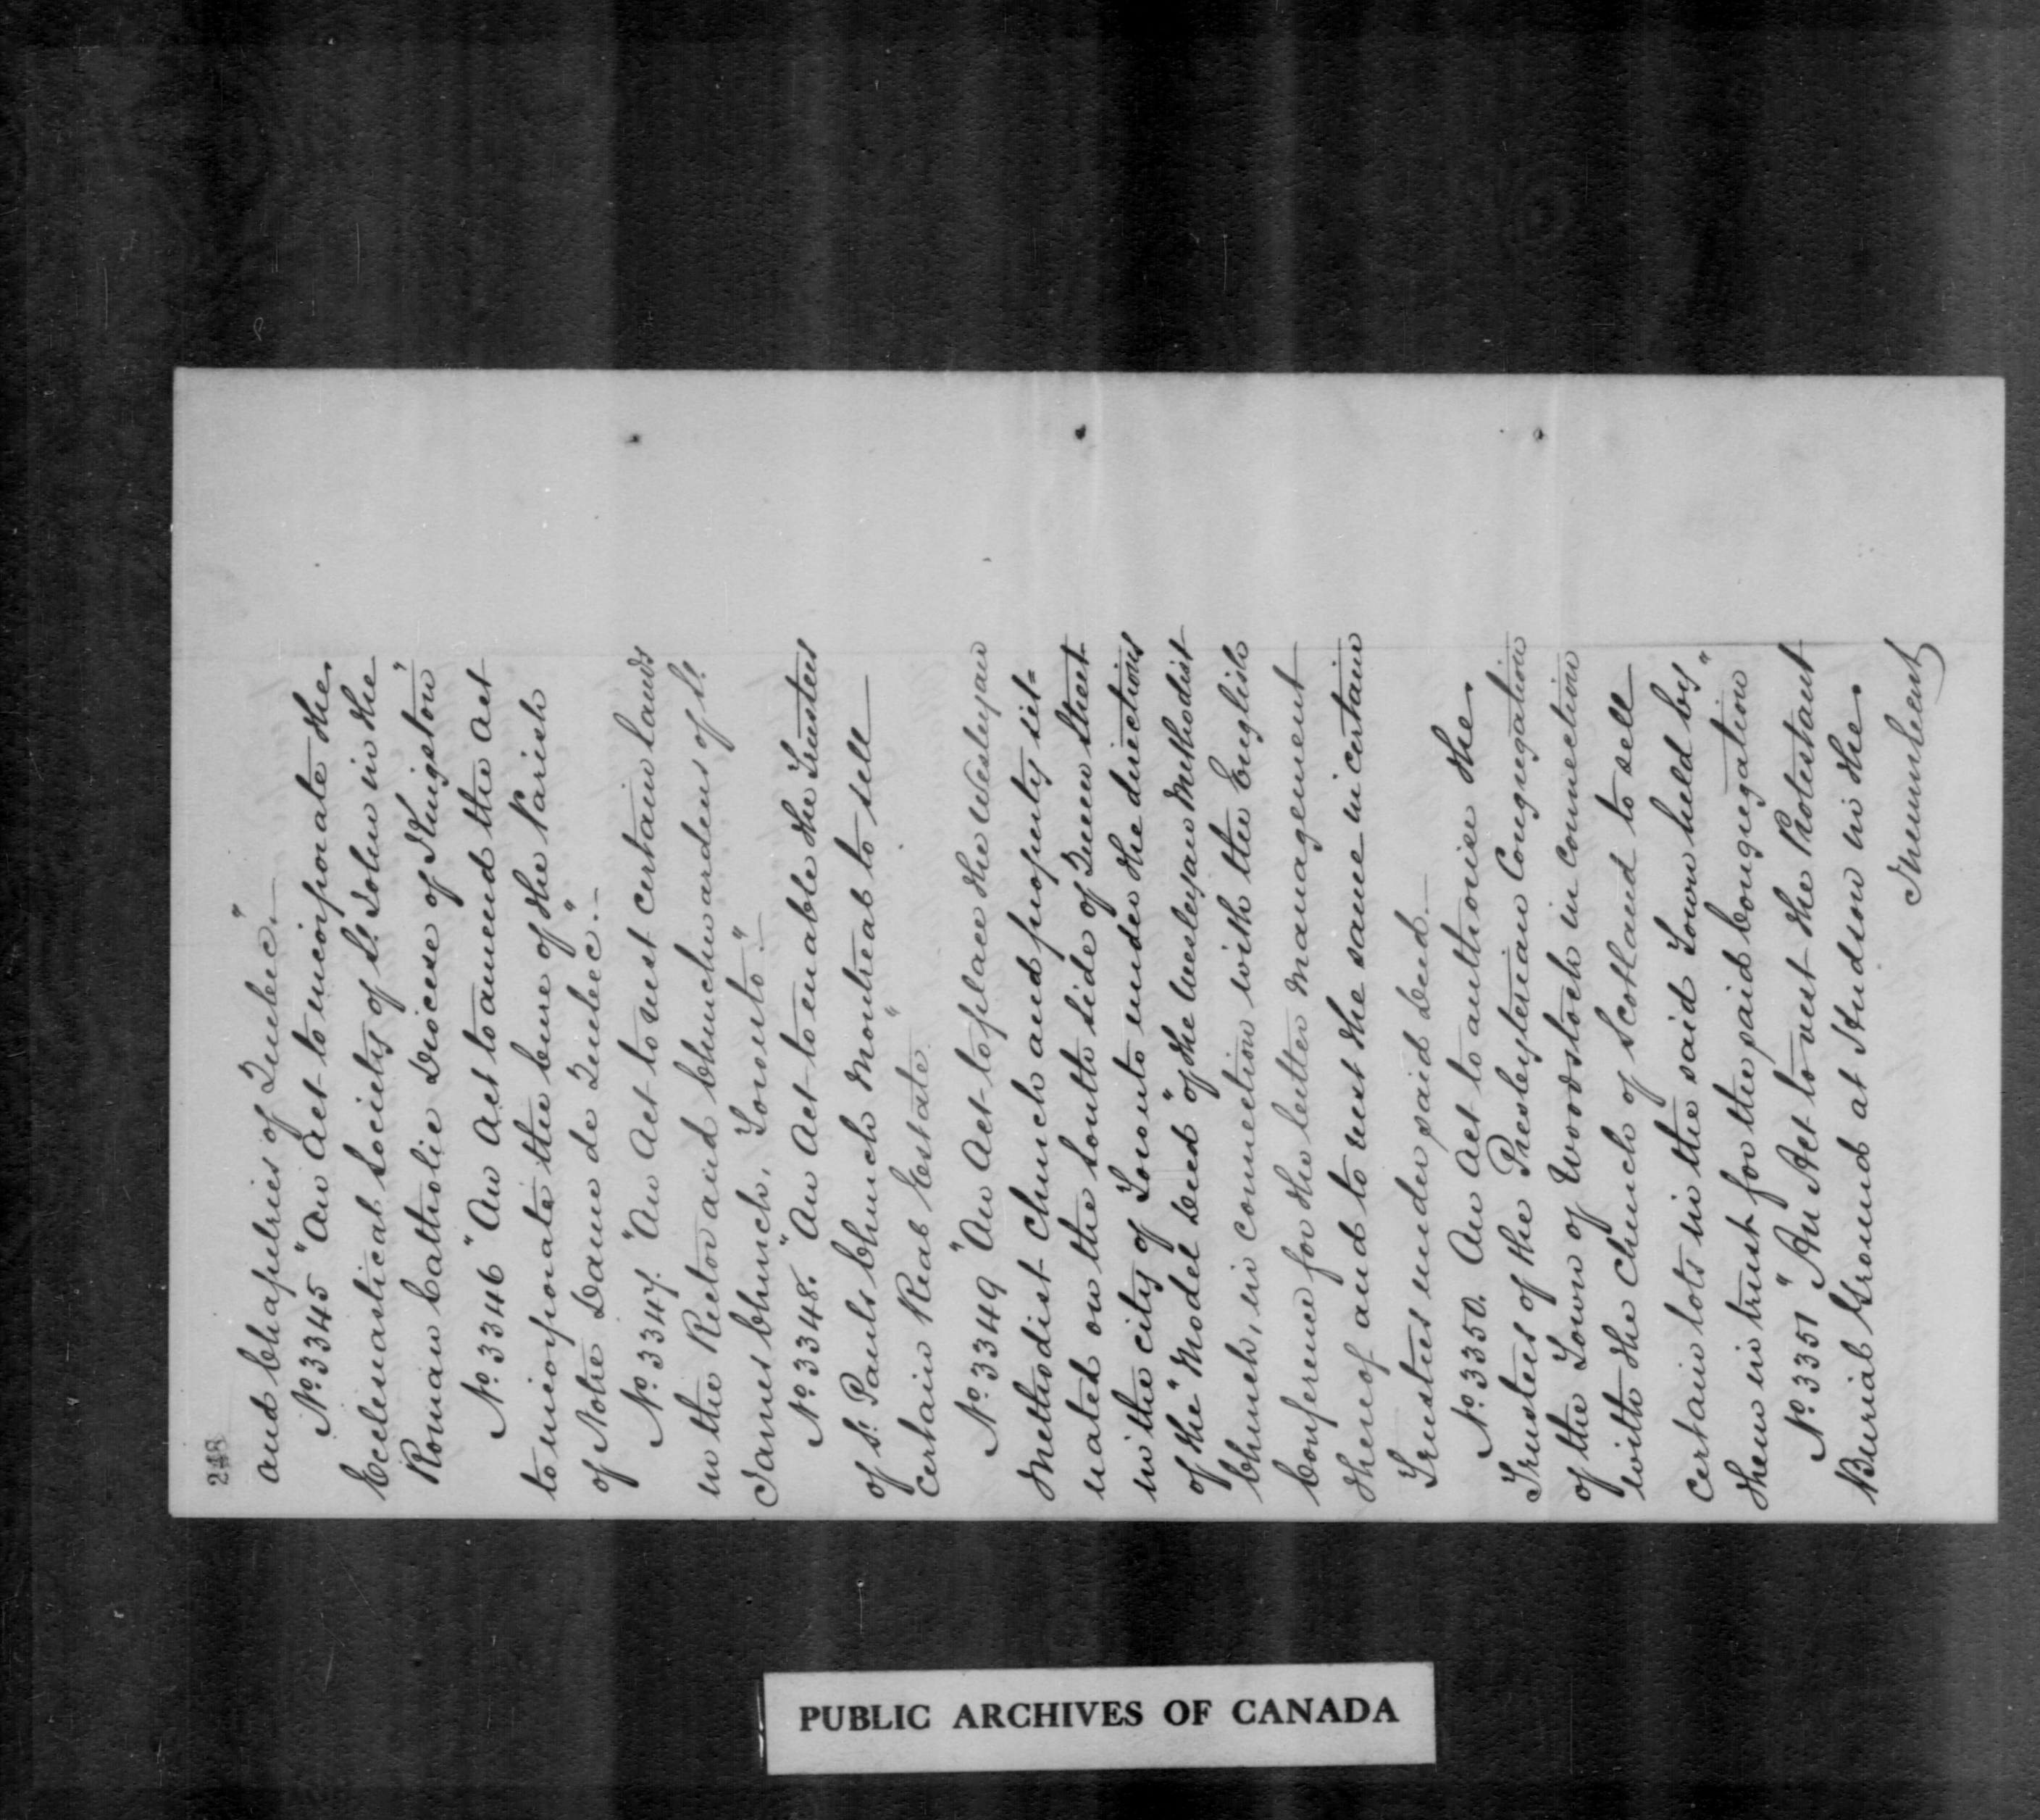 248
and Chapelries of Quebec."
No. 3345 "An Act to incorporate the
Ecclesiastical Society of St. John in the
Roman Catholic Diocese of Kingston"
No. 3346 "An Act to amend the Act
to incorporate the Cure of the Parish
of Notre Dame de Quebec."
No. 3347. "An Act to vest certain lands
in the Rector and Churchwardens of St.
James Church, Toronto."
No. 3348. "An Act to enable the Trustees
of St. Pauls Church Montreal to sell
certain Real Estate"
No. 3349 "An Act to place the Wesleyan
Methodist Church and property sit=
uated on the South side of Queen Street
in the city of Toronto under the directions
of the "Model Deed" of the Wesleyan Methodist
Church, in connection with the English
Conference for the better management
thereof and to vest the same in certain
Trustees under said Deed.
No. 3350. An Act to authorise the
Trustees of the Presbyterian Congregation
of the Town of Woodstock in connection
with the Church of Scotland to sell
certain lots in the said Town held by
them in trust for the said Congregation"
No. 3351 "An Act to vest the Protestant
Burial Ground at Hudson in the
Incumbent
PUBLIC ARCHIVES OF CANADA